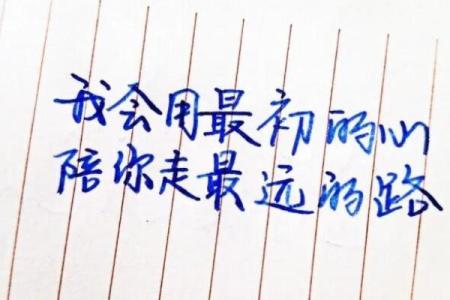 我会用最初的心
陪你走最远的路